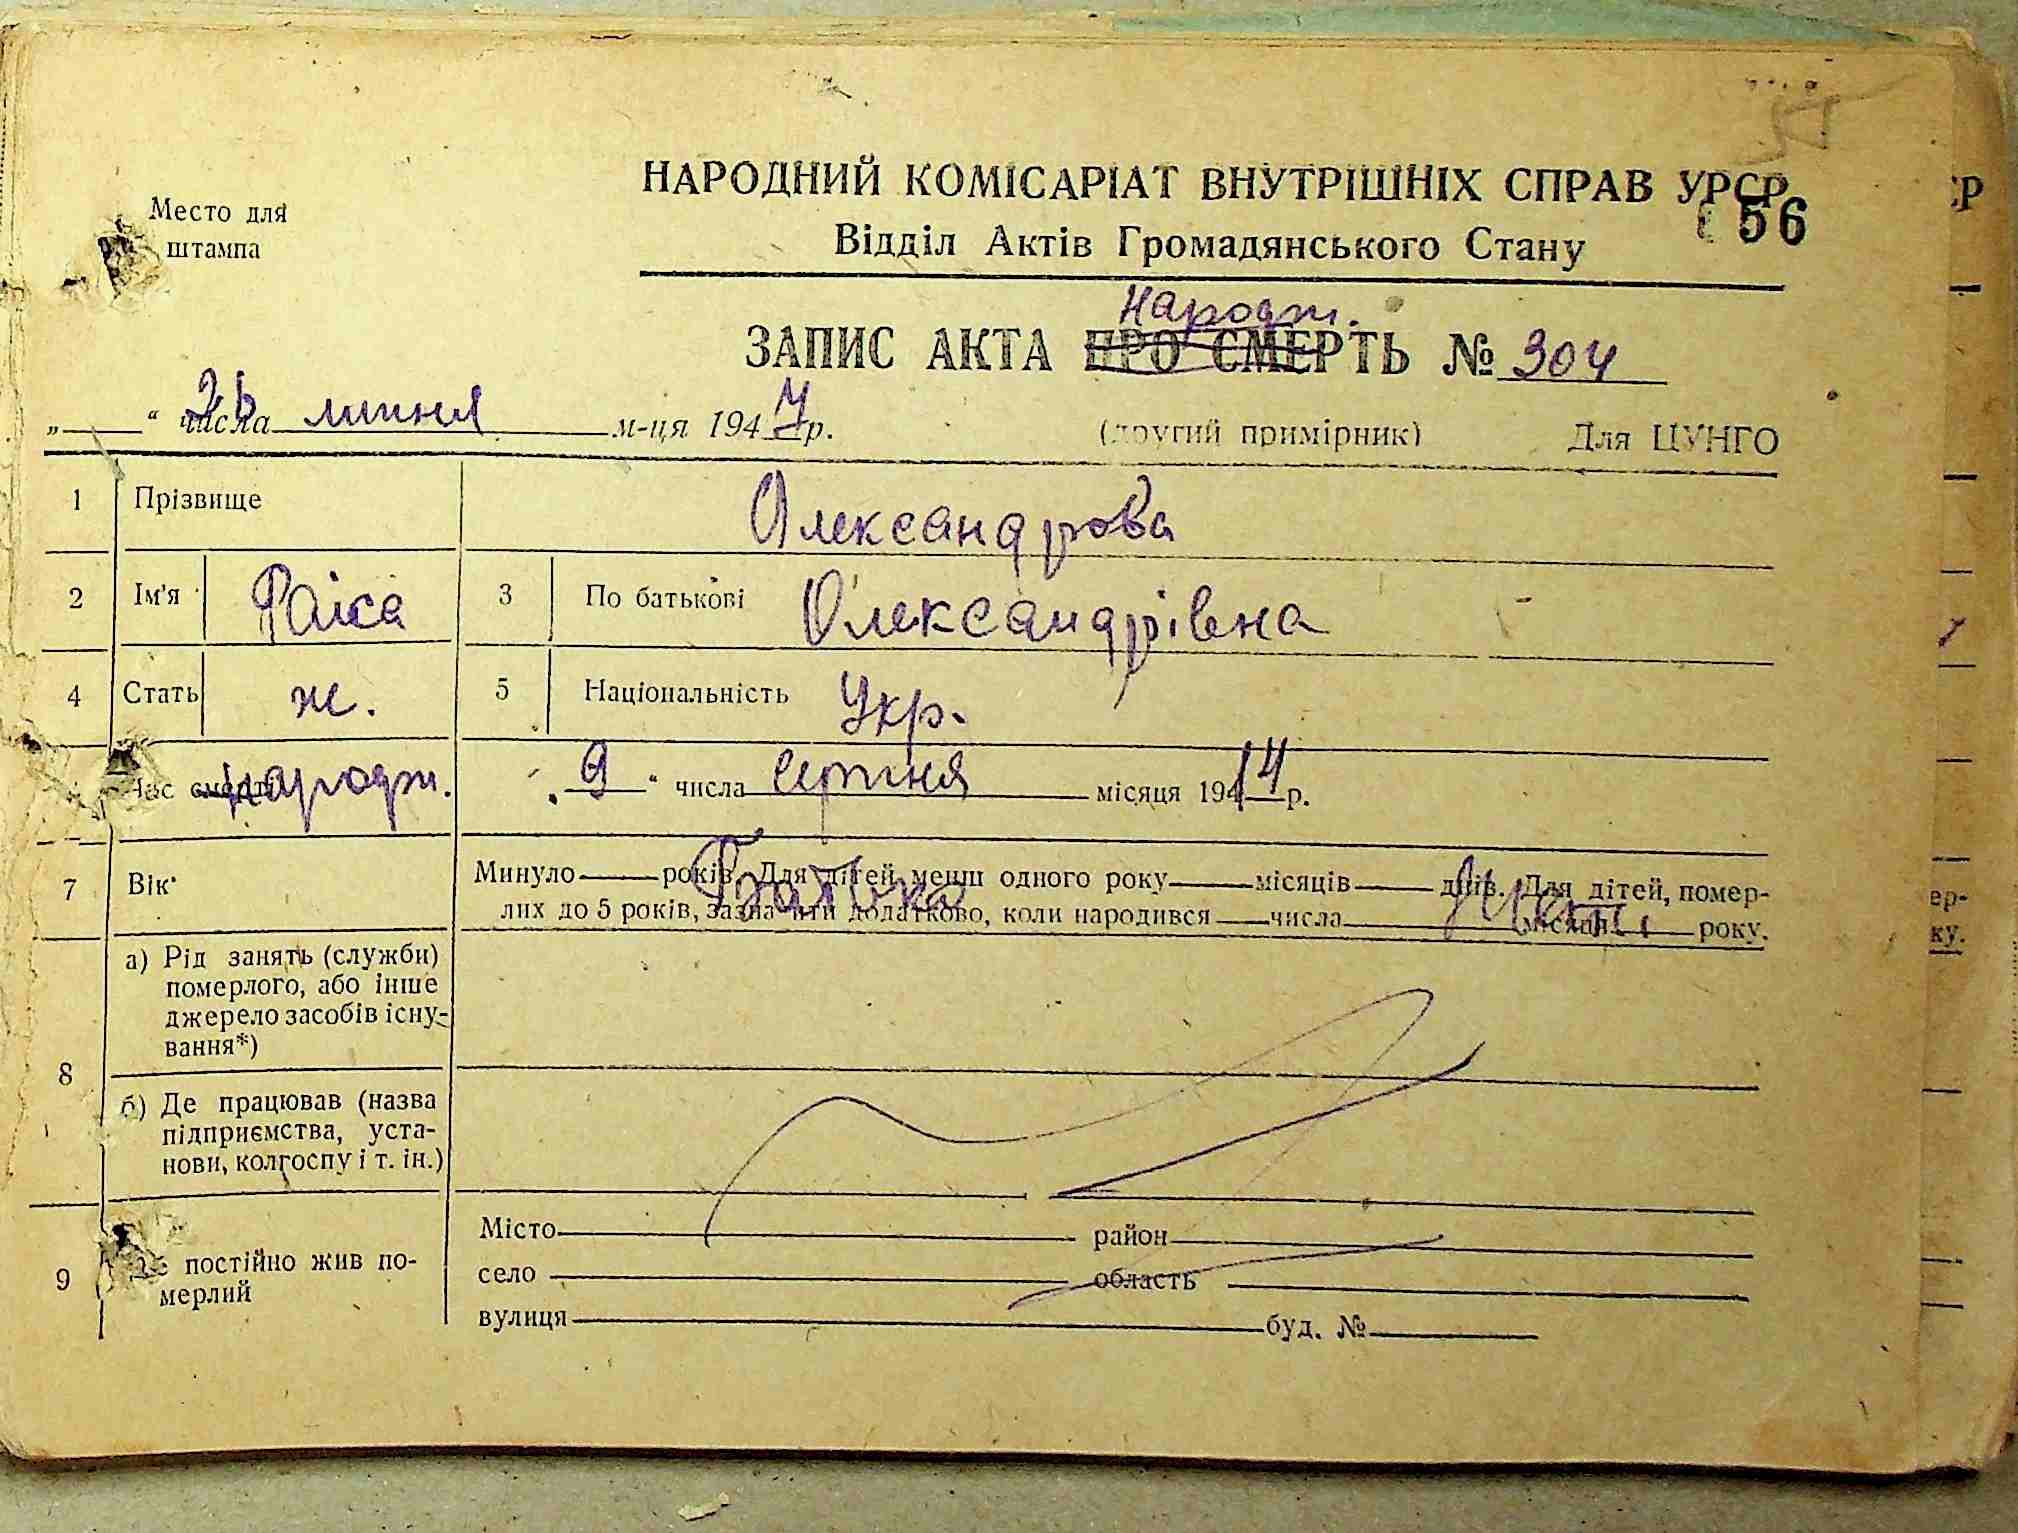 Место для
штампа
НАРОДНИЙ КОМІСАРІАТ ВНУТРІШНІХ СПРАВ УРСР
Відділ Актів Громадянського Стану
56
Народж.
ЗАПИС АКТА ПРО СМЕРТЬ № 304
„ “ числа 26 липня м-ця 1947 р.
(другий примірник) Для ЦУНГО
1 Прізвище Олександрова
2 Ім'я Раїса 3 По батькові Олександрівна
4 Стать ж. 5 Національність Укр.
Час смерті народж. „ 9 “ числа серпня місяця 194 14 р.
7 Вік Минуло років. Для дітей менш одного року місяців днів. Для дітей, помер-
лих до 5 років, зазначити додатково, коли народився числа місяця року.
Батько Мати
8 а) Рід занять (служби)
померлого, або інше
джерело засобів існу-
вання*)
б) Де працював (назва
підприємства, уста-
нови, колгоспу і т. ін.)
9 Де постійно жив по-
мерлий
Місто район
село область
вулиця буд. №